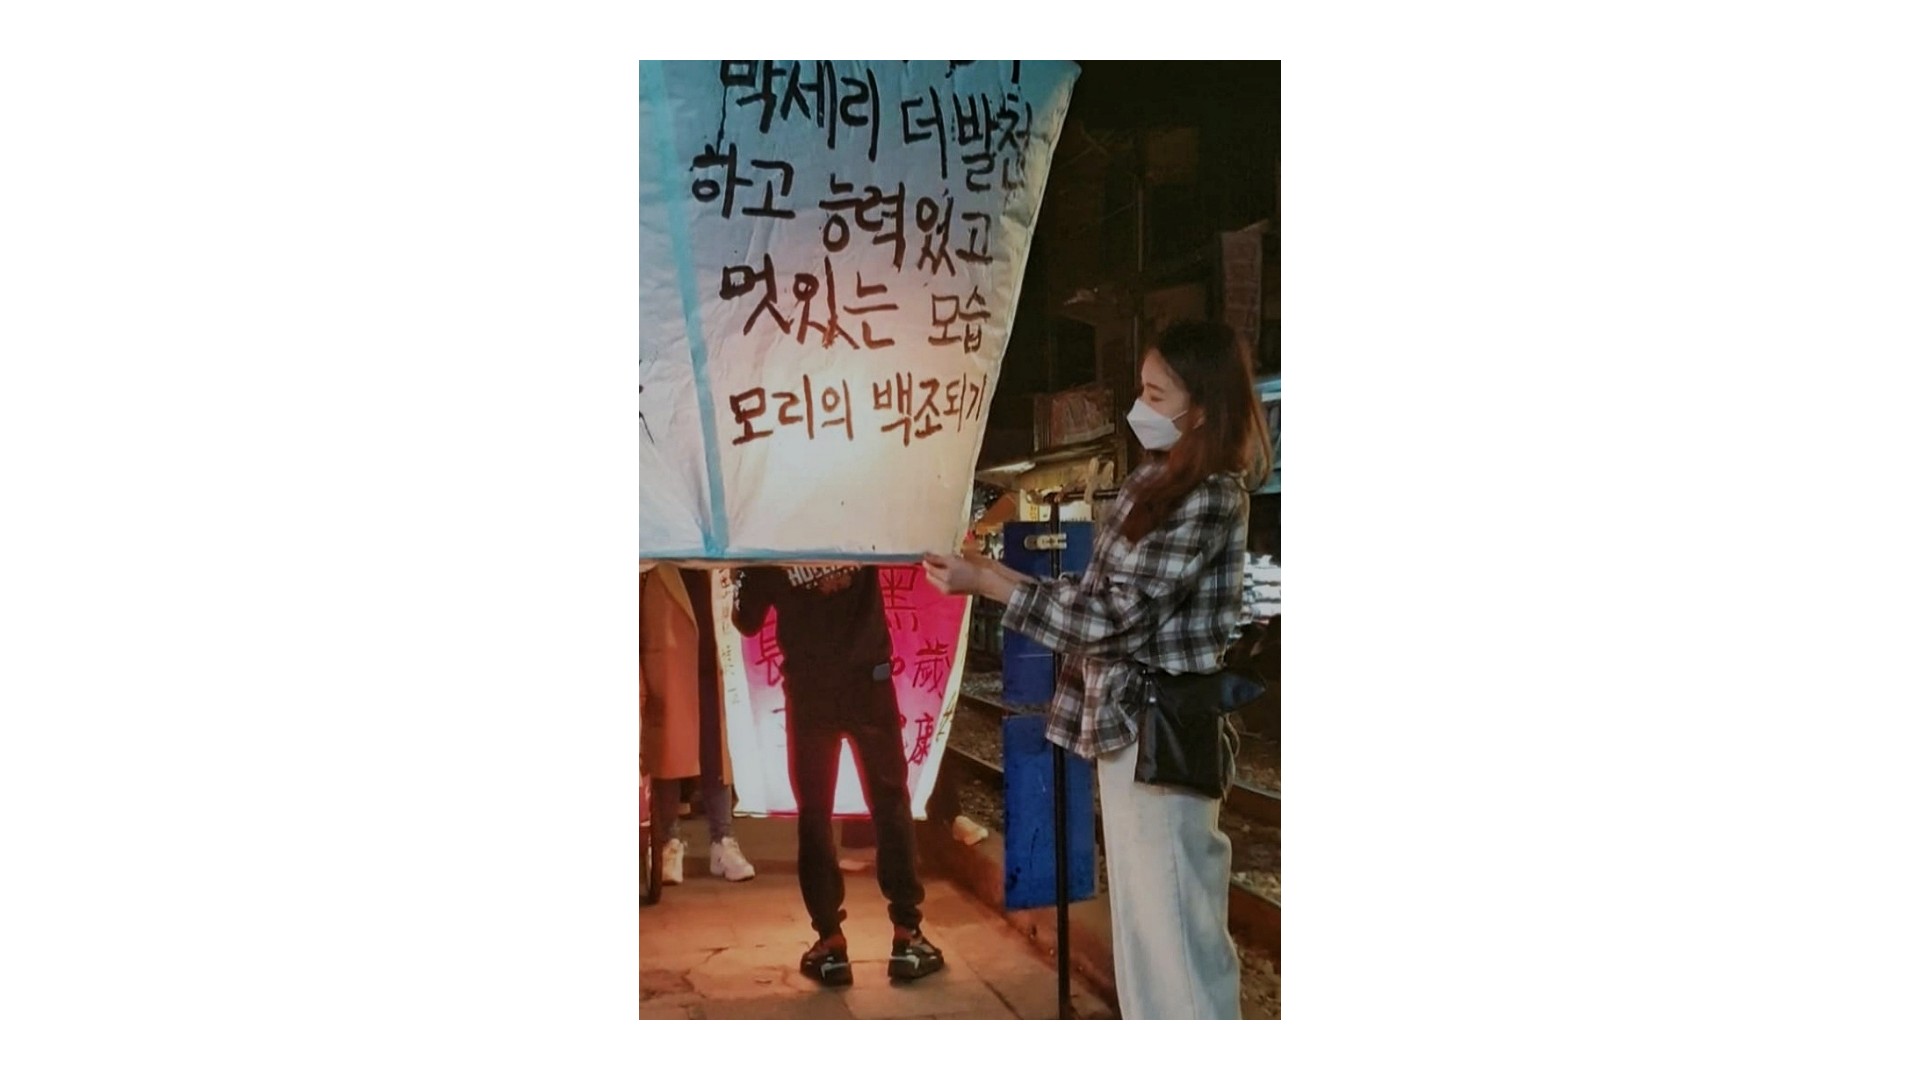 박세리 더 발전
하고 능력 있고
멋있는 모습
모리의 백조되기
黑
長
歲
康